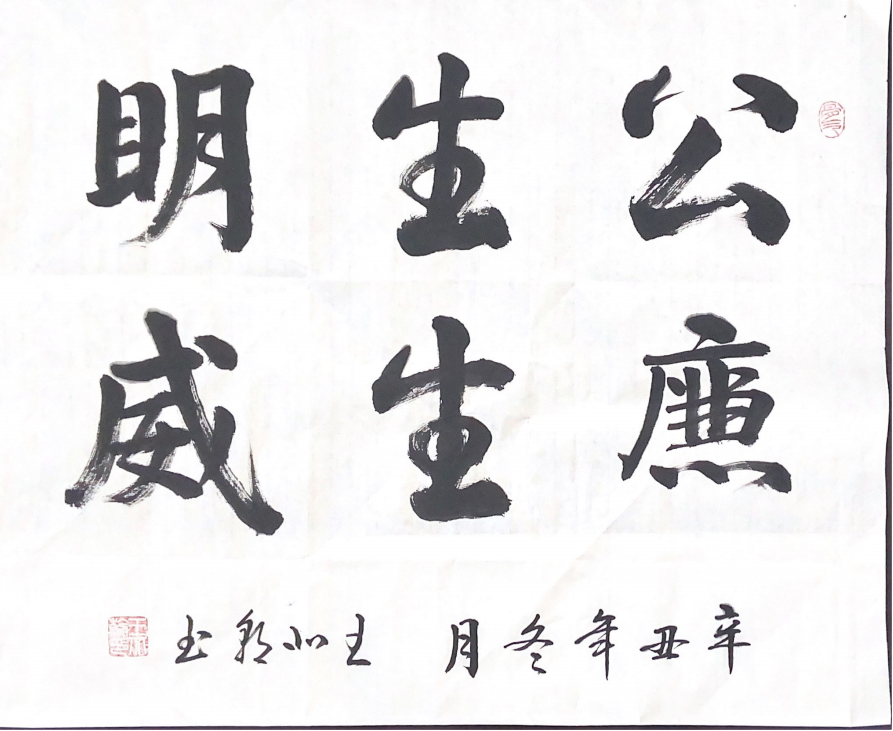 公生明
廉生威
辛丑年冬月 王